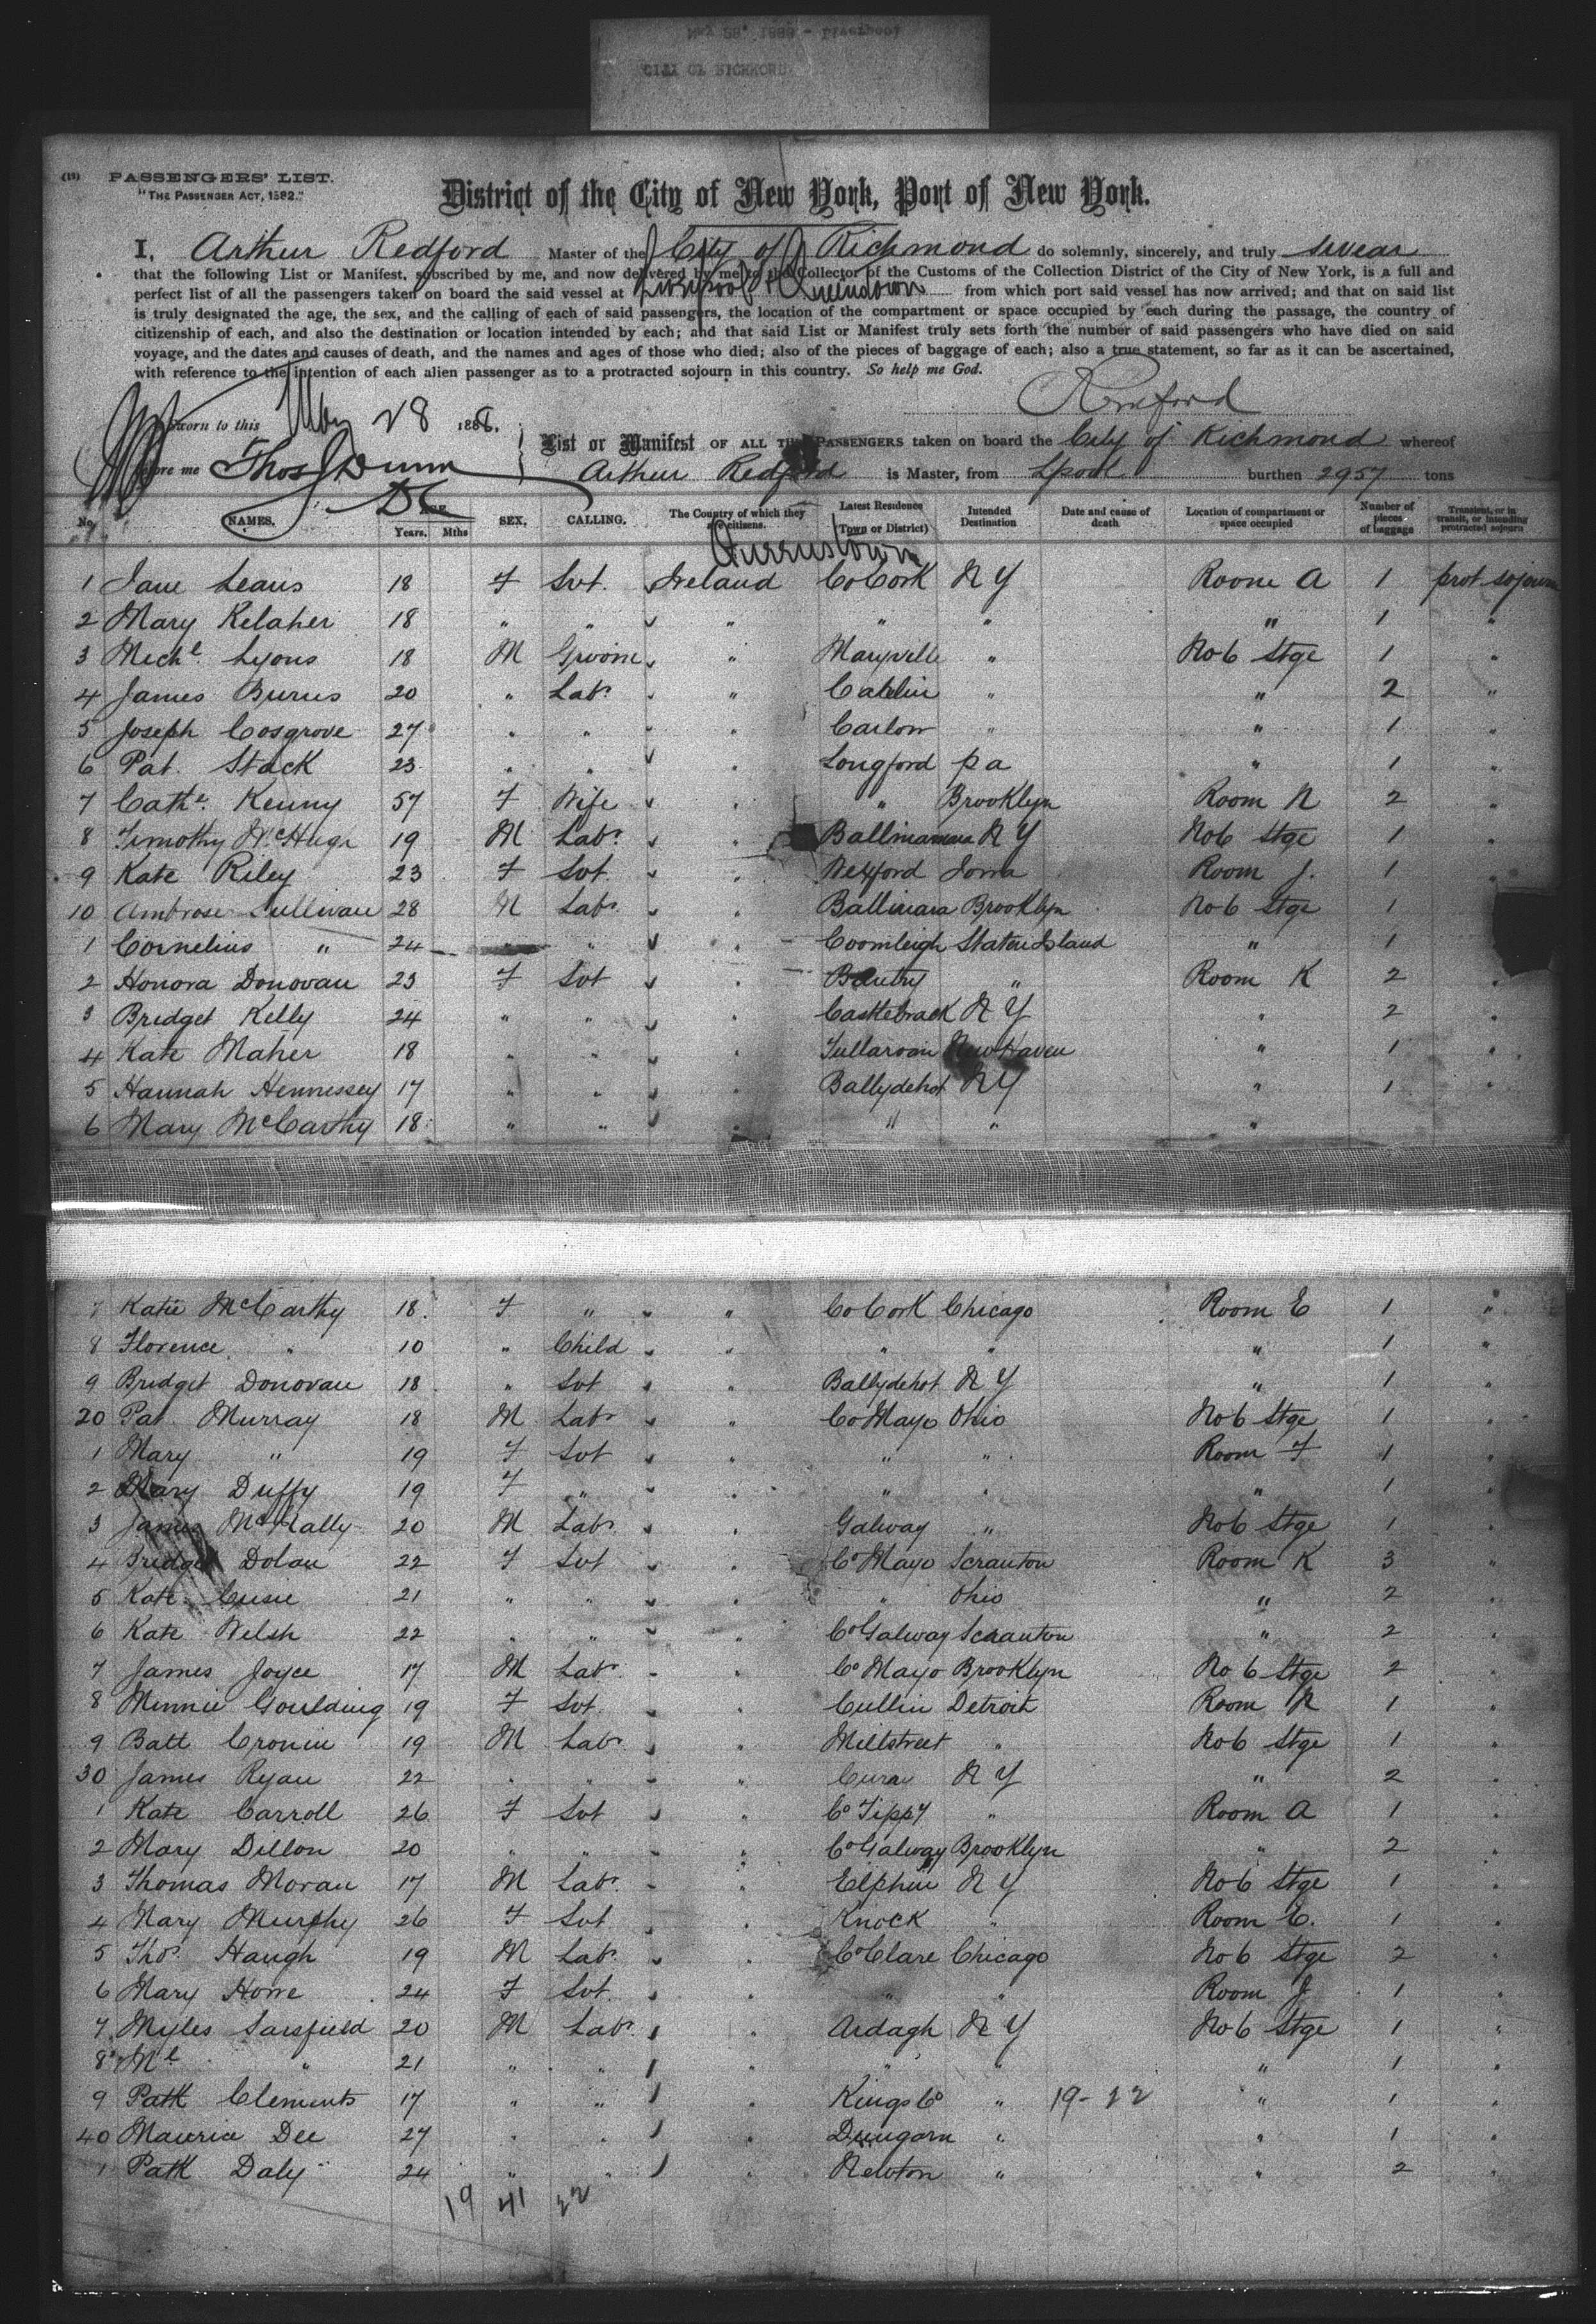 May 28, 1888 - Liverpool
CITY OF RICHMOND
(19) PASSENGERS' LIST.
"THE PASSENGER ACT, 1882."
District of the City of New York, Port of New York.
I, Arthur Redford Master of the City of Richmond do solemnly, sincerely, and truly swear
that the following List or Manifest, subscribed by me, and now delivered by me to the Collector of the Customs of the Collection District of the City of New York, is a full and
perfect list of all the passengers taken on board the said vessel at Liverpool & Queenstown from which port said vessel has now arrived; and that on said list
is truly designated the age, the sex, and the calling of each of said passengers, the location of the compartment or space occupied by each during the passage, the country of
citizenship of each, and also the destination or location intended by each; and that said List or Manifest truly sets forth the number of said passengers who have died on said
voyage, and the dates and causes of death, and the names and ages of those who died; also of the pieces of baggage of each; also a true statement, so far as it can be ascertained,
with reference to the intention of each alien passenger as to a protracted sojourn in this country. So help me God.
Sworn to this May 28 188
before me Thos J Dunn
DC
List or Manifest OF ALL THE PASSENGERS taken on board the City of Richmond whereof
Arthur Redford is Master, from Lpool burthen 2957 tons
No. NAMES. AGE. Years. Mths SEX. CALLING. The Country of which they are citizens. Latest Residence (Town or District) Intended Destination Date and cause of death Location of compartment or space occupied Number of pieces of baggage Transient, or in transit, or intending protracted sojourn
Queenstown
1 Jane Leans 18 F Svt. Ireland Co Cork N Y Room A 1 prot sojourn
2 Mary Kelaher 18 " " " " " " 1 "
3 Mich l Lyons 18 M Groom " Maryville " No 6 Stge 1 "
4 James Burns 20 " Labr " " " 2 "
5 Joseph Cosgrove 27 " " " Carlow " " 1 "
6 Pat. Stack 23 " " " Longford pa " 1 "
7 Cathe. Kenny 57 F Wife " " Brooklyn Room N 2 "
8 Timothy McHugh 19 M Labr " N Y No 6 Stge 1 "
9 Kate Riley 23 F Svt. " Wexford Iowa Room J. 1 "
10 Ambrose Sullivan 28 M Labr " Brooklyn No 6 Stge 1
1 Cornelius " 24 " " " Coomleigh Staten Island " 1
2 Honora Donovan 23 F Svt " Bantry " Room K 2 "
3 Bridget Kelly 24 " " " Castlebrack N Y " 2 "
4 Kate Maher 18 " " " Tullaroan New Haven " 1 "
5 Hannah Hennessey 17 " " " Ballydehot N Y " 1 "
6 Mary McCarthy 18 " " " " " "
7 Katie McCarthy 18 F " " Co Cork Chicago Room E 1 "
8 Florence " 10 " Child " " " " 1 "
9 Bridget Donovan 18 " Svt " Ballydehot N Y " 1 "
20 Pat Murray 18 M Labr " Co Mayo Ohio No 6 Stge 1 "
1 Mary " 19 F Svt " " " Room F 1 "
2 Mary Duffy 19 F " " " " " 1 "
3 James McNally 20 M Labr " Galway " No 6 Stge 1 "
4 Bridget Dolan 22 F Svt " Co Mayo Scranton Room K 3 "
5 Kate 21 " " " " Ohio " 2 "
6 Kate Welsh 22 " " " Co Galway Scranton " 2 "
7 James Joyce 17 M Labr " Co Mayo Brooklyn No 6 Stge 2 "
8 Minnie Goulding 19 F Svt. " Cullin Detroit Room N 1 "
9 Batt Cronin 19 M Labr " Millstreet " No 6 Stge 1 "
30 James Ryan 22 " " " N Y " 2 "
1 Kate Carroll 26 F Svt " Co Tippy " Room A 1 "
2 Mary Dillon 20 " " " Co Galway Brooklyn " 2 "
3 Thomas Moran 17 M Labr " Elphin N Y No 6 Stge 1 "
4 Mary Murphy 26 F Svt " Knock " Room E. 1 "
5 Thos. Haugh 19 M Labr " Co Clare Chicago No 6 Stge 2 "
6 Mary Howe 24 F Svt. " " " Room J 1 "
7 Myles Sarsfield 20 M Labr " Ardagh N Y No 6 Stge 1 "
8 Ml " 21 " " " " " " 1 "
9 Patk Clements 17 " " " Kings Co " 19-22 " 1 "
40 Maurice Dee 27 " " " Dungarn " " 1 "
1 Patk Daly 24 " " " Newton " " 2 "
19 41 22